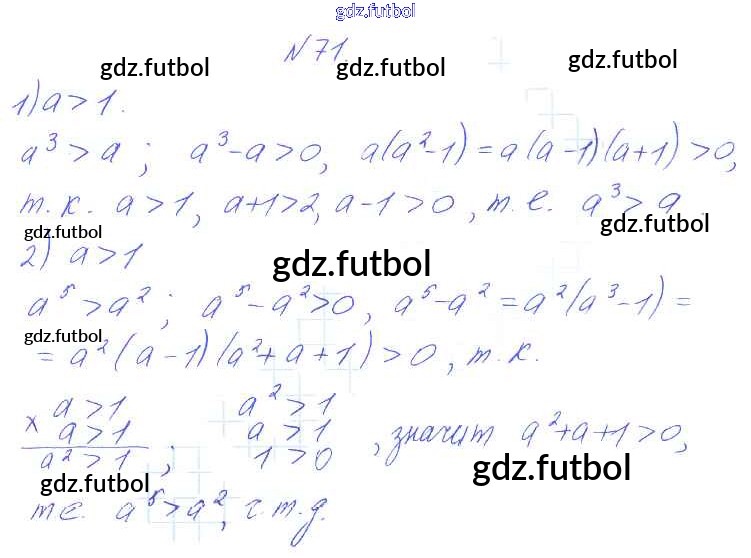 gdz.futbol
N71.
gdz.futbol
gdz.futbol
1) a > 1.
a³ > a ; a³-a > 0, a(a²-1) = a(a-1)(a+1) > 0,
т.к. a > 1, a+1 > 2, a-1 > 0, т.е. a³ > a.
gdz.futbol
gdz.futbol
2) a > 1
gdz.futbol
a⁵ > a² ; a⁵-a² > 0, a⁵-a² = a²(a³-1) =
gdz.futbol
= a²(a-1)(a²+a+1) > 0, т.к.
× a > 1 a² > 1
a > 1 a > 1 , значит a²+a+1 > 0,
a² > 1 ; 1 > 0
gdz.futbol
gdz.futbol
те. a⁵ > a², ч.т.д.